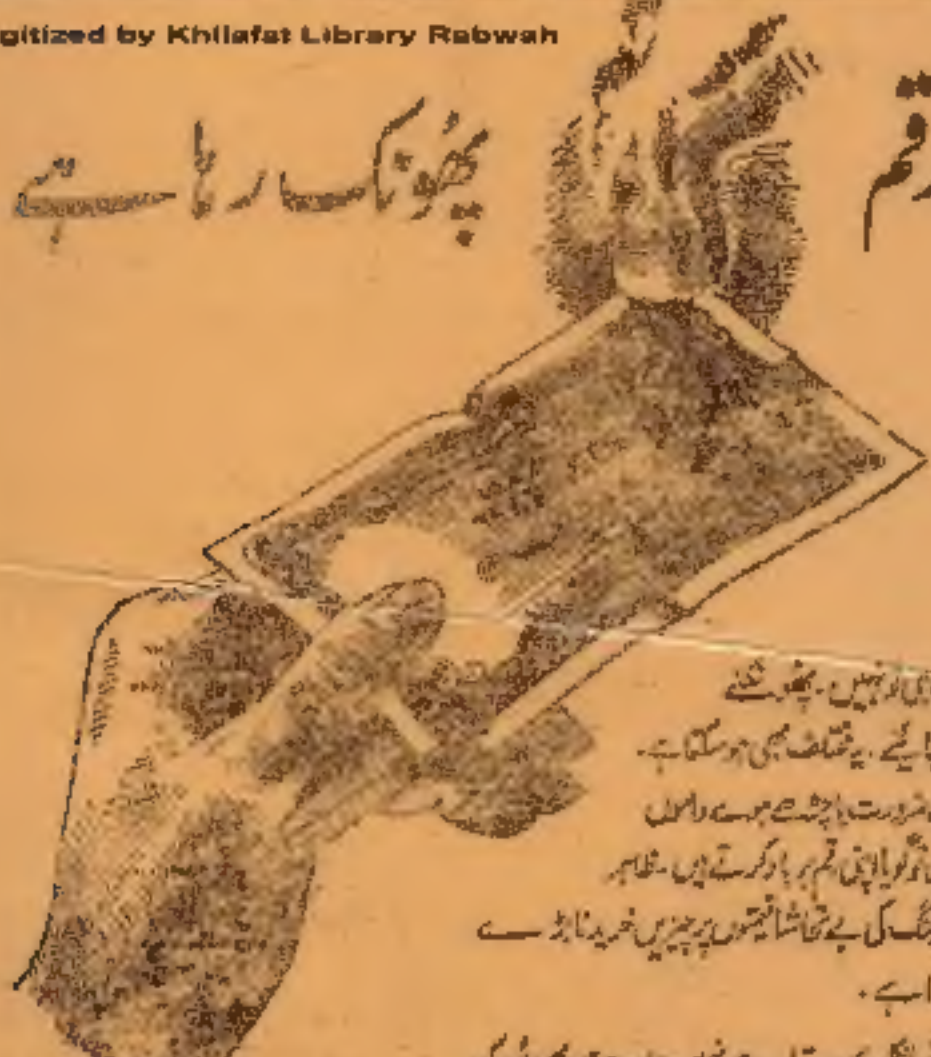 gitized by Khilafat Library Rabwah
رقم
پھُونک رہا ہے
تو نہیں ۔ پھر سُنئے
یہ مختلف بھی ہو سکتا ہے ۔
ضرورت یا چڑھے ہوئے داموں
گویا اپنی رقم برباد کرتے ہیں ۔ ظاہر
کی بے تحاشا قیمتوں پر چیزیں خریدنا بڑے
ہے ۔